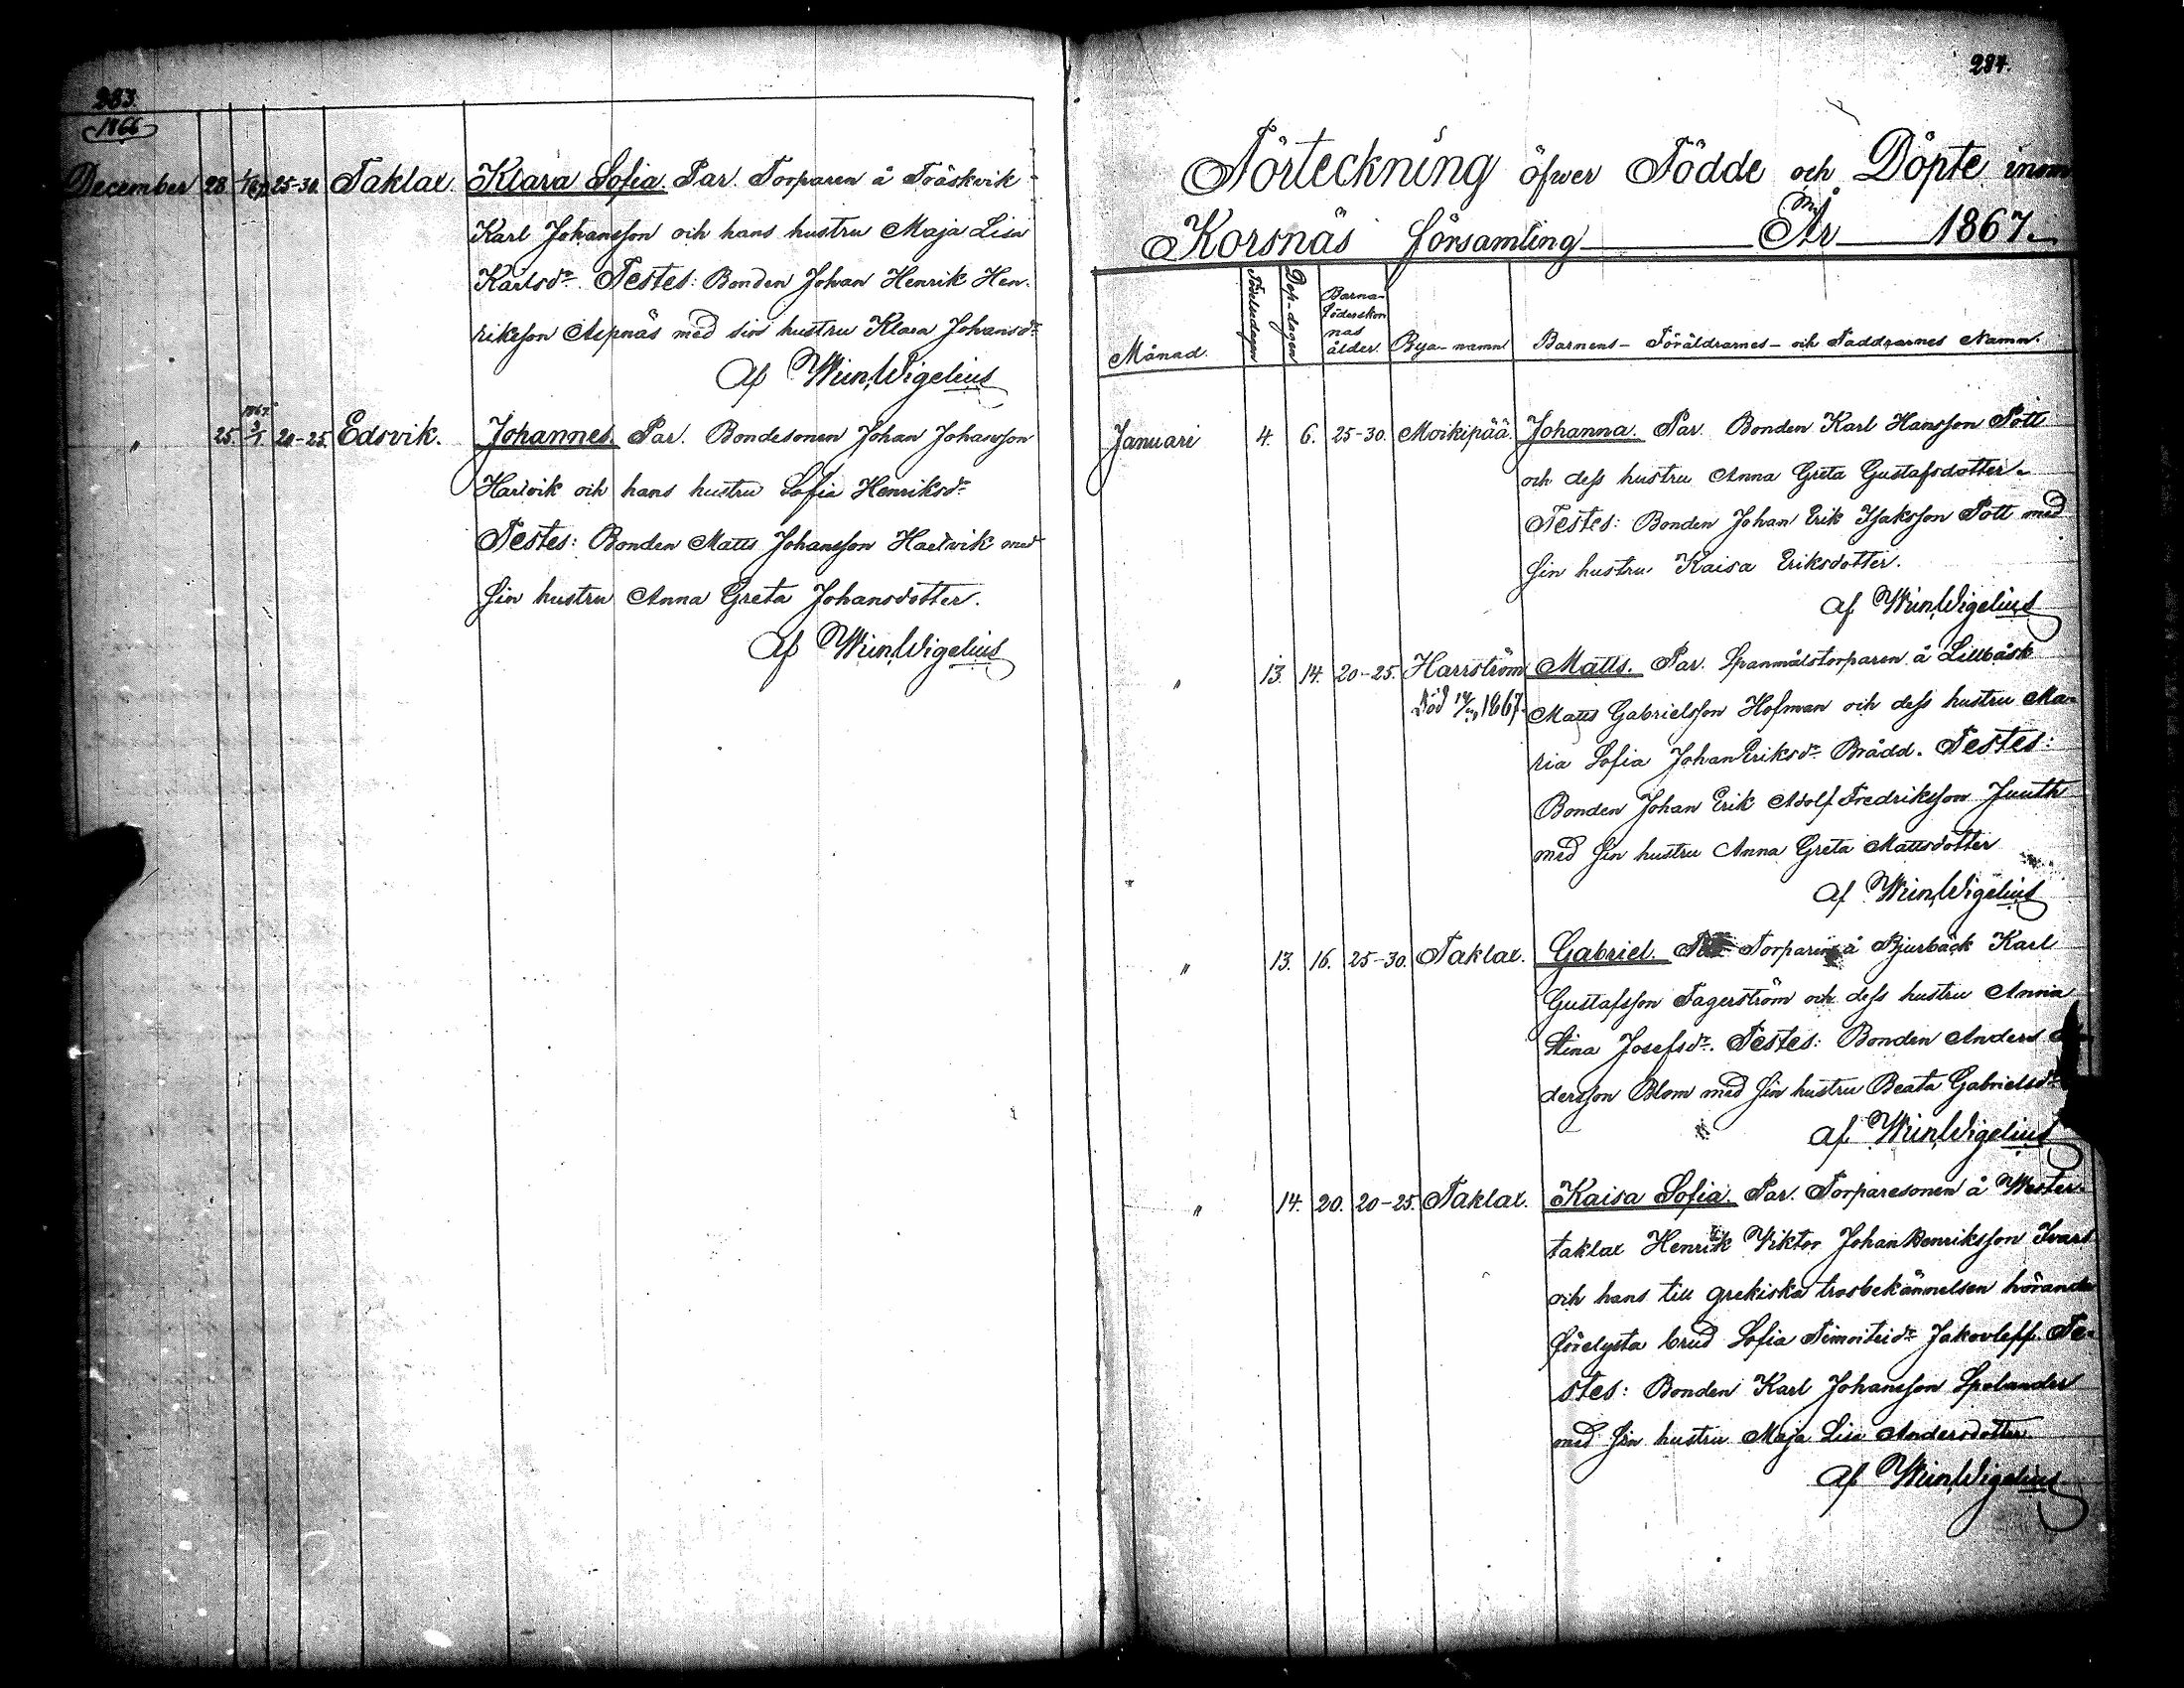 283.
1866
December 28 1/1 67 25-30. Taklax. Klara Sofia. Par. Torparen å Träskvik
Karl Johansson och hans hustru Maja Lisa
Karlsdr. Testes: Bonden Johan Henrik Hen-
riksson Aspnäs med sin hustru Klara Johansdr
Af Wm Wigelius
" 25. 1867 3/1 20-25. Edsvik. Johannes. Par. Bondesonen Johan Johansson
Hartvik och hans hustru Sofia Henriksdr
Testes: Bonden Matts Johansson Hartvik med
sin hustru Anna Greta Johansdotter.
Af Wm Wigelius
284.
Förteckning öfwer Födde och Döpte inom
Korsnäs församling År 1867.
Månad. Födelsedagen Dop-dagen Barna-föderskornas ålder. Bya-namn Barnens- Föräldrarnes- och Faddrarnes Namn.
Januari 4. 6. 25-30. Moikipää. Johanna. Par. Bonden Karl Hansson Pött
och dess hustru Anna Greta Gustafsdotter.
Testes: Bonden Johan Erik Isaksson Pott med
sin hustru Kaisa Eriksdotter.
Af Wm Wigelius
" 13. 14. 20-25. Harrström Matts. Par. Spanmålstorparen å Lillbåsk
Död 1867. Matts Gabrielsson Hofman och dess hustru Ma-
ria Sofia Johan Eriksdr Brådd. Testes:
Bonden Johan Erik Adolf Fredriksson Juuth
med sin hustru Anna Greta Mattsdotter
Af Wm Wigelius
" 13. 16. 25-30. Taklax. Gabriel. Torparen å Bjurbäck Karl
Gustafsson Fagerström och dess hustru Anna
Stina Josefsdr. Testes: Bonden Anders
dersson Blom med sin hustru Beata Gabrielsdr
Af Wm Wigelius
" 14. 20. 20-25. Taklax. Kaisa Sofia. Par. Torparesonen å Wester-
taklax Henrik Viktor Johan Henriksson Ivars
och hans till grekiska trosbekännelsen hörande
förelysta brud Sofia Timoteidr Jakovleff. Te-
stes: Bonden Karl Johansson Spolander
med sin hustru Maja Lisa Andersdotter.
Af Wm Wigelius